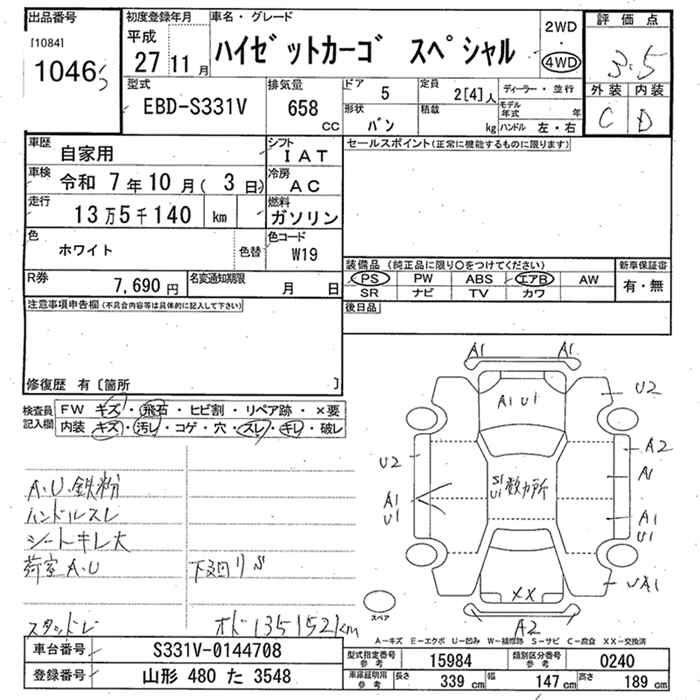 出品番号
[1084]
1046
初度登録年月
平成
27 11 月
車名・グレード
ハイゼットカーゴ スペシャル
2WD
・
4WD
評価点
3.5
外装 内装
C D
型式
EBD-S331V
排気量
658
CC
ドア 5
定員 2[4]人
ディーラー・並行
形状 バン
積載 kg
モデル年式 年
ハンドル 左・右
車歴 自家用
シフト IAT
車検 令和 7年10月( 3日)
冷房 AC
走行 13万5千140 km
燃料 ガソリン
色 ホワイト 色替
色コード W19
R券 7,690円
名変通知期限 月 日
セールスポイント(正常に機能するものに限ります)
装備品 (純正品に限り○をつけてください)
PS PW ABS エアB AW
SR ナビ TV カワ
新車保証書
有・無
後日品
注意事項申告欄(不具合内容等は具体的に記入して下さい)
修復歴 有〔箇所 〕
検査員記入欄
FW キズ・飛石・ヒビ割・リペア跡・×要
内装 キズ・汚レ・コゲ・穴・スレ・キレ・破レ
A.U.鉄粉
ハンドルスレ
シートキレ大
荷室A.U
下廻りS
スタッドレ
オド135152km
A1 A1
A1 U1
U2
U2
A2
A1
A1
U1
S1
U1 数カ所
A1
U1
UA1
XX
A2
スペア
A-キズ E-エクボ U-凹み W-補修跡 S-サビ C-腐食 XX-交換済
車台番号 S331V-0144708
登録番号 山形 480 た 3548
型式指定番号 参考 15984
類別区分番号 参考 0240
車庫証明用 参考 長さ 339 cm 幅 147 cm 高さ 189 cm